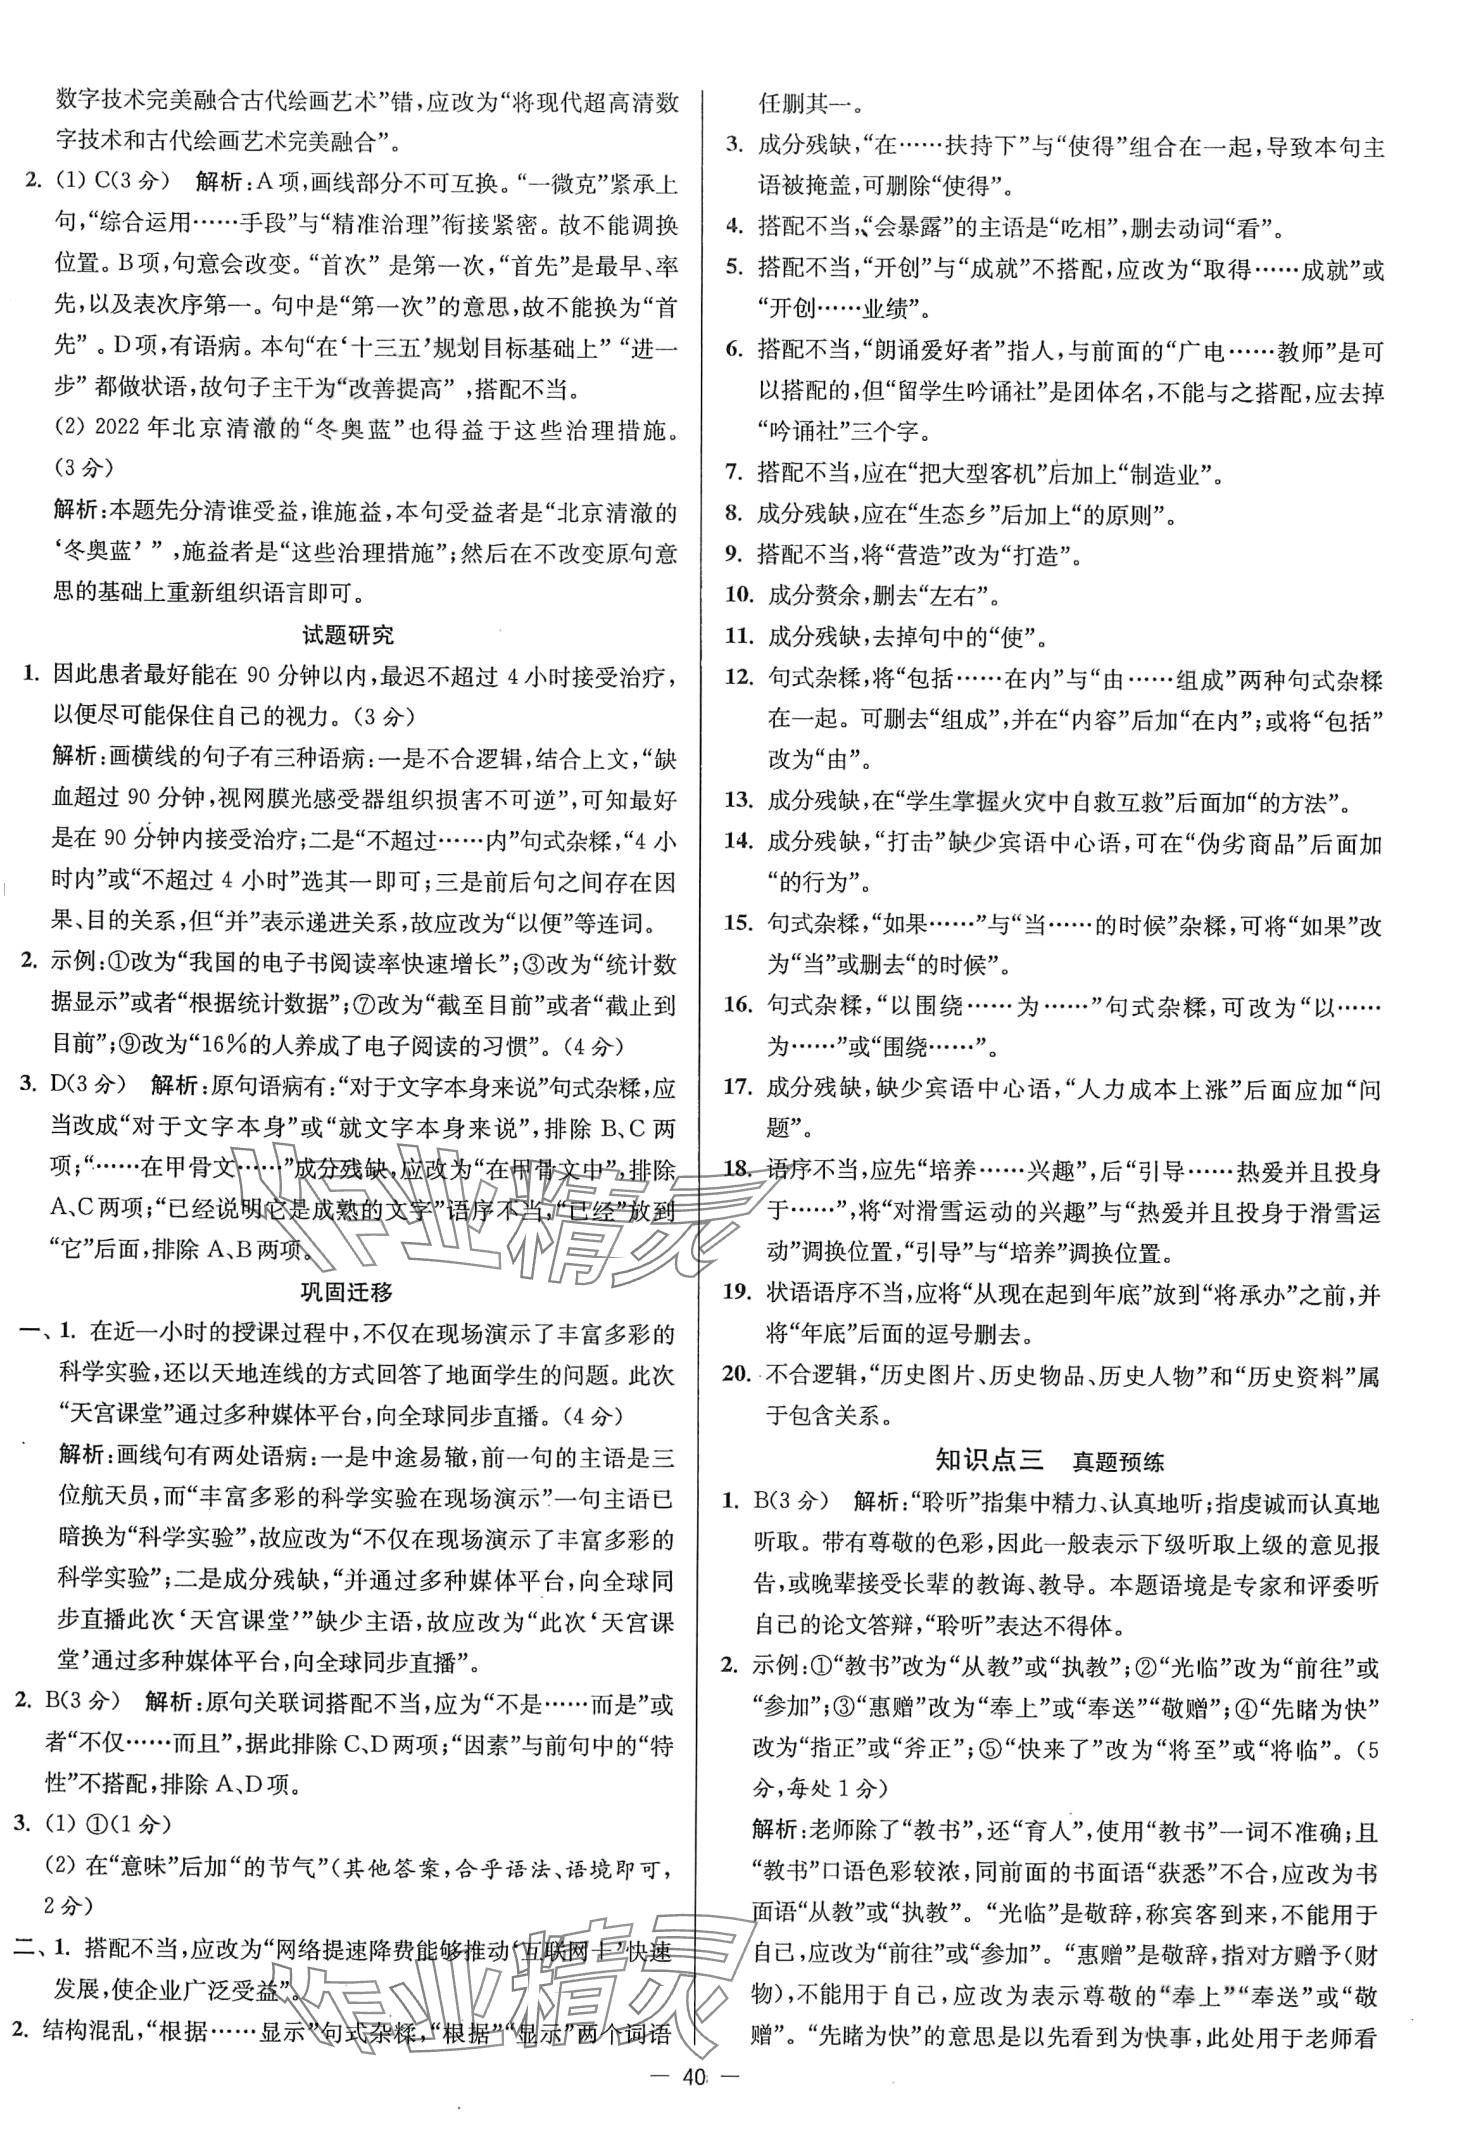 数字技术完美融合古代绘画艺术”错，应改为“将现代超高清数
字技术和古代绘画艺术完美融合”。
2. (1) C(3分) 解析:A项,画线部分不可互换。“一微克”紧承上
句,“综合运用……手段”与“精准治理”衔接紧密。故不能调换
位置。B项,句意会改变。“首次”是第一次,“首先”是最早、率
先,以及表次序第一。句中是“第一次”的意思,故不能换为“首
先”。D项,有语病。本句“在‘十三五’规划目标基础上”“进一
步”都做状语,故句子主干为“改善提高”,搭配不当。
(2) 2022年北京清澈的“冬奥蓝”也得益于这些治理措施。
(3分)
解析:本题先分清谁受益,谁施益,本句受益者是“北京清澈的
‘冬奥蓝’”,施益者是“这些治理措施”;然后在不改变原句意
思的基础上重新组织语言即可。
试题研究
1. 因此患者最好能在90分钟以内,最迟不超过4小时接受治疗,
以便尽可能保住自己的视力。(3分)
解析:画横线的句子有三种语病:一是不合逻辑,结合上文,“缺
血超过90分钟,视网膜光感受器组织损害不可逆”,可知最好
是在90分钟内接受治疗;二是“不超过……内”句式杂糅,“4小
时内”或“不超过4小时”选其一即可;三是前后句之间存在因
果、目的关系,但“并”表示递进关系,故应改为“以便”等连词。
2. 示例:①改为“我国的电子书阅读率快速增长”;③改为“统计数
据显示”或者“根据统计数据”;⑦改为“截至目前”或者“截止到
目前”;⑨改为“16%的人养成了电子阅读的习惯”。(4分)
3. D(3分) 解析:原句语病有:“对于文字本身来说”句式杂糅,应
当改成“对于文字本身”或“就文字本身来说”,排除B、C两
项;“……在甲骨文……”成分残缺,应改为“在甲骨文中”,排除
A、C两项;“已经说明它是成熟的文字”语序不当,“已经”放到
“它”后面,排除A、B两项。
巩固迁移
一、1. 在近一小时的授课过程中,不仅在现场演示了丰富多彩的
科学实验,还以天地连线的方式回答了地面学生的问题。此次
“天宫课堂”通过多种媒体平台,向全球同步直播。(4分)
解析:画线句有两处语病:一是中途易辙,前一句的主语是三
位航天员,而“丰富多彩的科学实验在现场演示”一句主语已
暗换为“科学实验”,故应改为“不仅在现场演示了丰富多彩的
科学实验”;二是成分残缺,“并通过多种媒体平台,向全球同
步直播此次‘天宫课堂’”缺少主语,故应改为“此次‘天宫课
堂’通过多种媒体平台,向全球同步直播”。
2. B(3分) 解析:原句关联词搭配不当,应为“不是……而是”或
者“不仅……而且”,据此排除C、D两项;“因素”与前句中的“特
性”不搭配,排除A、D项。
3. (1) ①(1分)
(2) 在“意味”后加“的节气”(其他答案,合乎语法、语境即可,
2分)
二、1. 搭配不当,应改为“网络提速降费能够推动‘互联网+’快速
发展,使企业广泛受益”。
2. 结构混乱,“根据……显示”句式杂糅,“根据”“显示”两个词语
任删其一。
3. 成分残缺,“在……扶持下”与“使得”组合在一起,导致本句主
语被掩盖,可删除“使得”。
4. 搭配不当,“会暴露”的主语是“吃相”,删去动词“看”。
5. 搭配不当,“开创”与“成就”不搭配,应改为“取得……成就”或
“开创……业绩”。
6. 搭配不当,“朗诵爱好者”指人,与前面的“广电……教师”是可
以搭配的,但“留学生吟诵社”是团体名,不能与之搭配,应去掉
“吟诵社”三个字。
7. 搭配不当,应在“把大型客机”后加上“制造业”。
8. 成分残缺,应在“生态乡”后加上“的原则”。
9. 搭配不当,将“营造”改为“打造”。
10. 成分赘余,删去“左右”。
11. 成分残缺,去掉句中的“使”。
12. 句式杂糅,将“包括……在内”与“由……组成”两种句式杂糅
在一起。可删去“组成”,并在“内容”后加“在内”;或将“包括”
改为“由”。
13. 成分残缺,在“学生掌握火灾中自救互救”后面加“的方法”。
14. 成分残缺,“打击”缺少宾语中心语,可在“伪劣商品”后面加
“的行为”。
15. 句式杂糅,“如果……”与“当……的时候”杂糅,可将“如果”改
为“当”或删去“的时候”。
16. 句式杂糅,“以围绕……为……”句式杂糅,可改为“以……
为……”或“围绕……”。
17. 成分残缺,缺少宾语中心语,“人力成本上涨”后面应加“问
题”。
18. 语序不当,应先“培养……兴趣”,后“引导……热爱并且投身
于……”,将“对滑雪运动的兴趣”与“热爱并且投身于滑雪运
动”调换位置,“引导”与“培养”调换位置。
19. 状语语序不当,应将“从现在起到年底”放到“将承办”之前,并
将“年底”后面的逗号删去。
20. 不合逻辑,“历史图片、历史物品、历史人物”和“历史资料”属
于包含关系。
知识点三 真题预练
1. B(3分) 解析:“聆听”指集中精力、认真地听;指虔诚而认真地
听取。带有尊敬的色彩,因此一般表示下级听取上级的意见报
告,或晚辈接受长辈的教诲、教导。本题语境是专家和评委听
自己的论文答辩,“聆听”表达不得体。
2. 示例:①“教书”改为“从教”或“执教”;②“光临”改为“前往”或
“参加”;③“惠赠”改为“奉上”或“奉送”“敬赠”;④“先睹为快”
改为“指正”或“斧正”;⑤“快来了”改为“将至”或“将临”。(5
分,每处1分)
解析:老师除了“教书”,还“育人”,使用“教书”一词不准确;且
“教书”口语色彩较浓,同前面的书面语“获悉”不合,应改为书
面语“从教”或“执教”。“光临”是敬辞,称宾客到来,不能用于
自己,应改为“前往”或“参加”。“惠赠”是敬辞,指对方赠予(财
物),不能用于自己,应改为表示尊敬的“奉上”“奉送”或“敬
赠”。“先睹为快”的意思是以先看到为快事,此处用于老师看
— 40 —
作业精灵
作业精灵